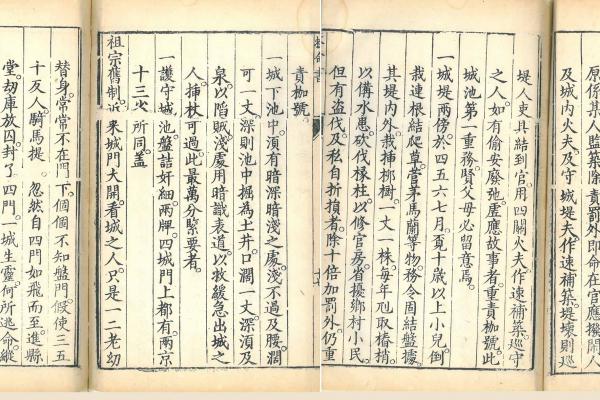 原係某人監築除責罰外即命在官應撥開人
及城內火夫及守城堤夫作速補築堤壞則巡
堤人吏具結到官用四關火夫作速補築巡守
之人如有偷安廢弛虛應故事者重責枷號此
城池第一重務賢父母必留意焉。
一城堤兩傍於四五六七月覔十歲以上小兒倒
栽連根結爬草菅茅馬藺等物務令固結盤據。
其堤內外栽插柳樹一丈一株。每年取椿梢
以備水患。砍伐樣柱以修官房省擾鄉村小民。
但有盜伐及私自折損者除十倍加罰外仍重
責枷號。
一城下池中。須有暗深暗淺之處。淺不過及腰濶
可一丈。深則池中掘為土井。口濶一丈。深須及
泉。以陷賊。淺處用暗識表道。以救緩急出城之
人。插杖可過。此最萬分緊要者。
一護守城池。盤詰奸細。兩牌四城門上都有。兩京
十三省所同。蓋
祖宗舊制。近來城門大開。看城之人。只是一二老幼
替身。常常不在門下。個個不知盤門。假使三五
十反人。騎馬提 忽然自四門如飛而至。進縣
堂。刼庫放囚。封了四門。一城生靈。何所逃命。縱